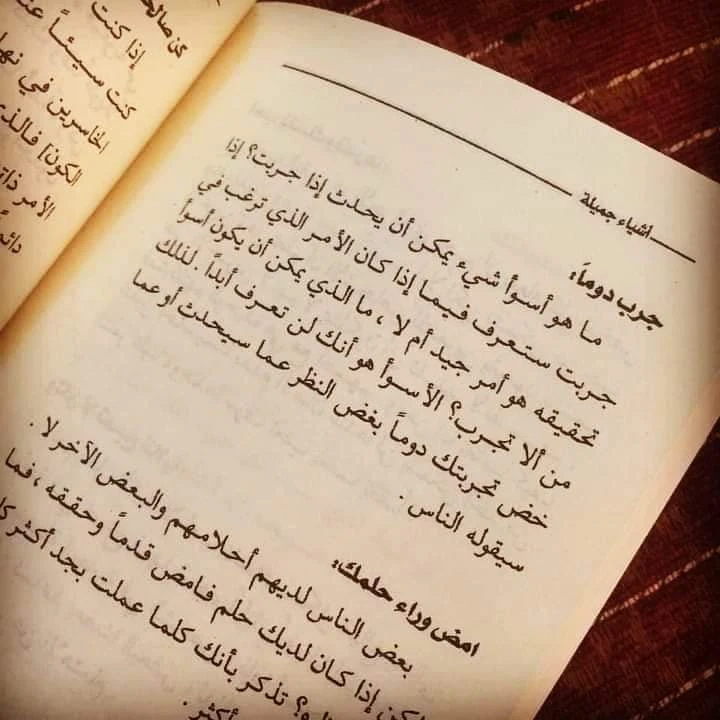 أشياء جميلة
جرب دوماً:
ما هو أسوأ شيء يمكن أن يحدث إذا جربت؟ إذا
جربت ستعرف فيما إذا كان الأمر الذي ترغب في
تحقيقه هو أمر جيد أم لا ، ما الذي يمكن أن يكون أسوأ
من ألا تجرب؟ الأسوأ هو أنك لن تعرف أبداً . لذلك
خض تجربتك دوماً بغض النظر عما سيحدث أو عما
سيقوله الناس .
امض وراء حلمك:
بعض الناس لديهم أحلامهم والبعض الآخر لا .
لكن إذا كان لديك حلم فامض قدماً وحققه ، فما
تذكر بأنك كلما عملت بجد أكثر
أكثر .
كن
إذا كنت
كنت سيئاً
الخاسرين في
الكون! فالذي
الأمر